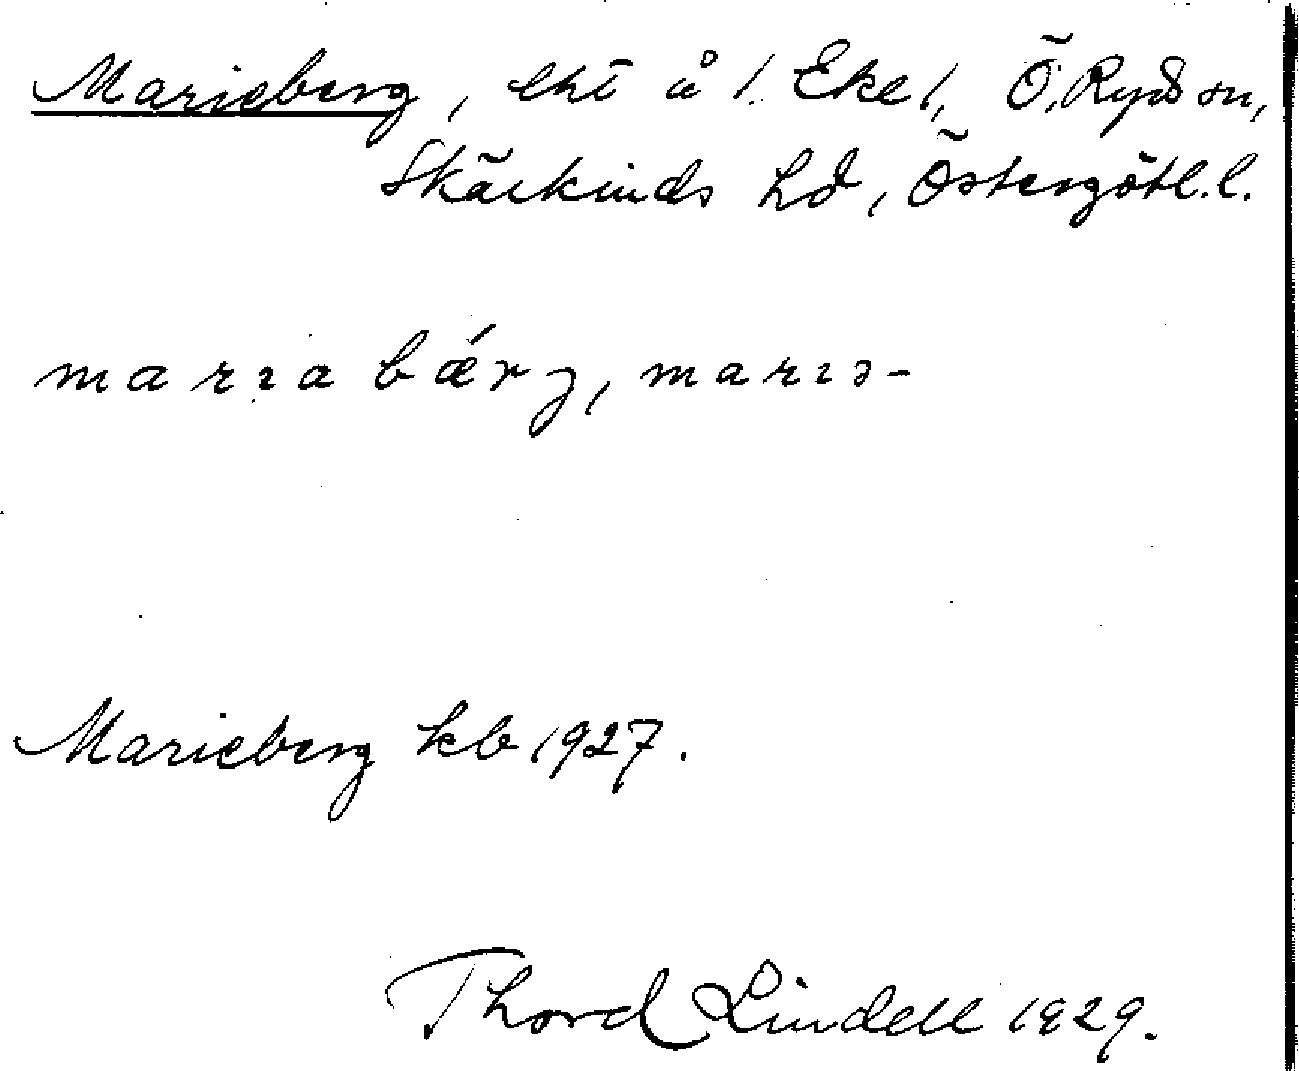 Marieberg, lht å 1. Eke 1, Ö. Ryds sn,
Skärkinds hd, Östergötl. l.
marɪa bǽrg, marɪɔ-
Marieberg kb 1927.
Thord Lindell 1929.